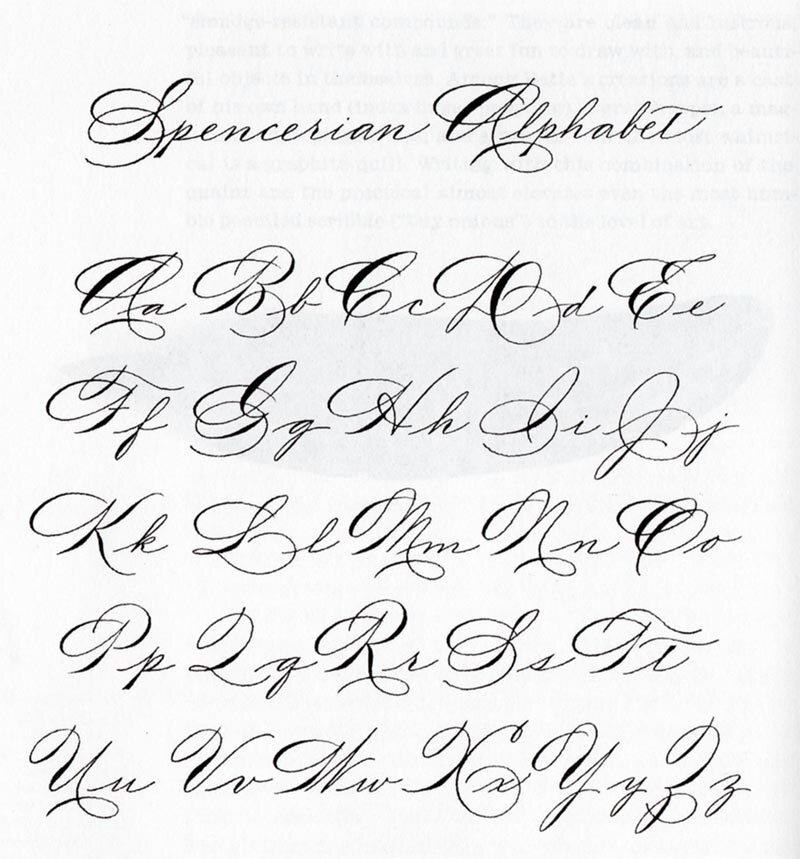 "smudge-resistant compounds." They are clean and lustrous,
pleasant to write with and great fun to draw with, and beauti-
ful objects in themselves. Among creations are a cast
of his own hand a mag-
cal is a graphite quill. Writing with this combination of the
quaint and the practical almost elevates even the most hum-
ble penciled scribble ("buy onions") to the level of art.
Spencerian Alphabet
Aa Bb Cc Dd Ee
Ff Gg Hh Ii Jj
Kk Ll Mm Nn Oo
Pp Qq Rr Ss Tt
Uu Vv Ww Xx Yy Zz